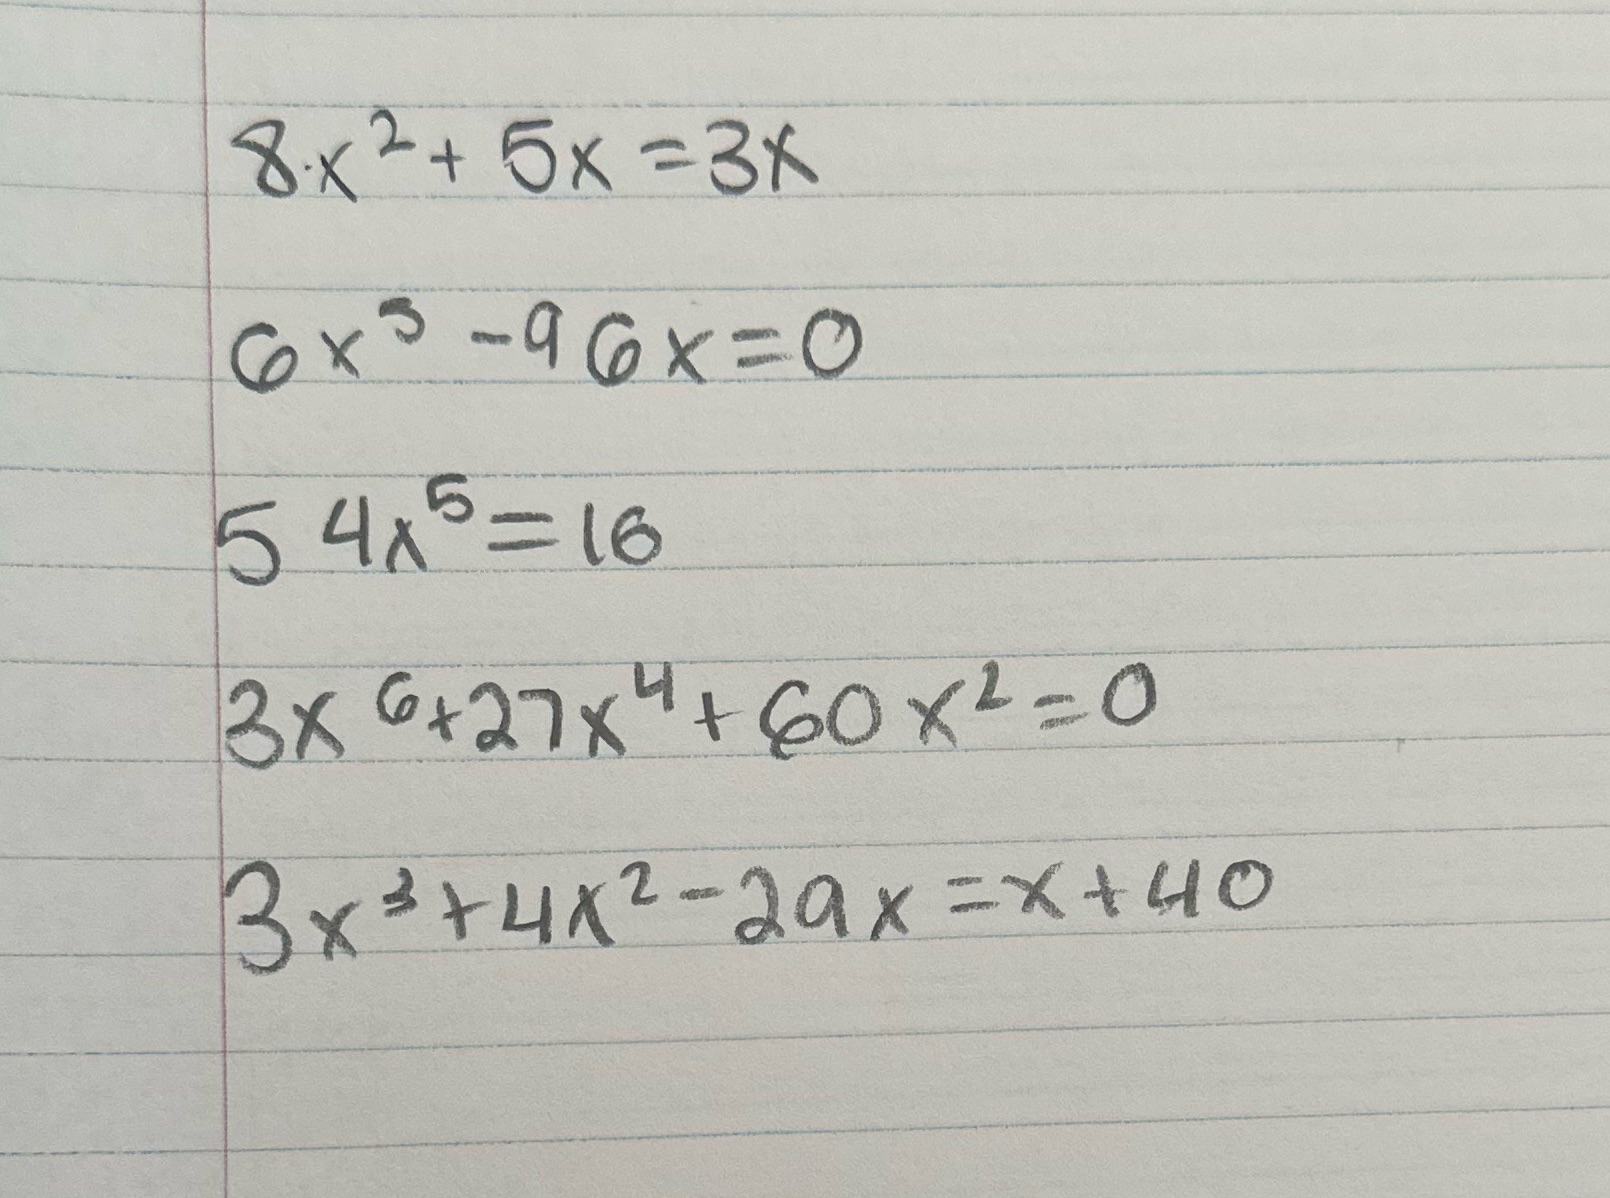 8x² + 5x = 3x
6x⁵ - 96x = 0
54x⁵ = 16
3x⁶ + 27x⁴ + 60x² = 0
3x³ + 4x² - 29x = x + 40